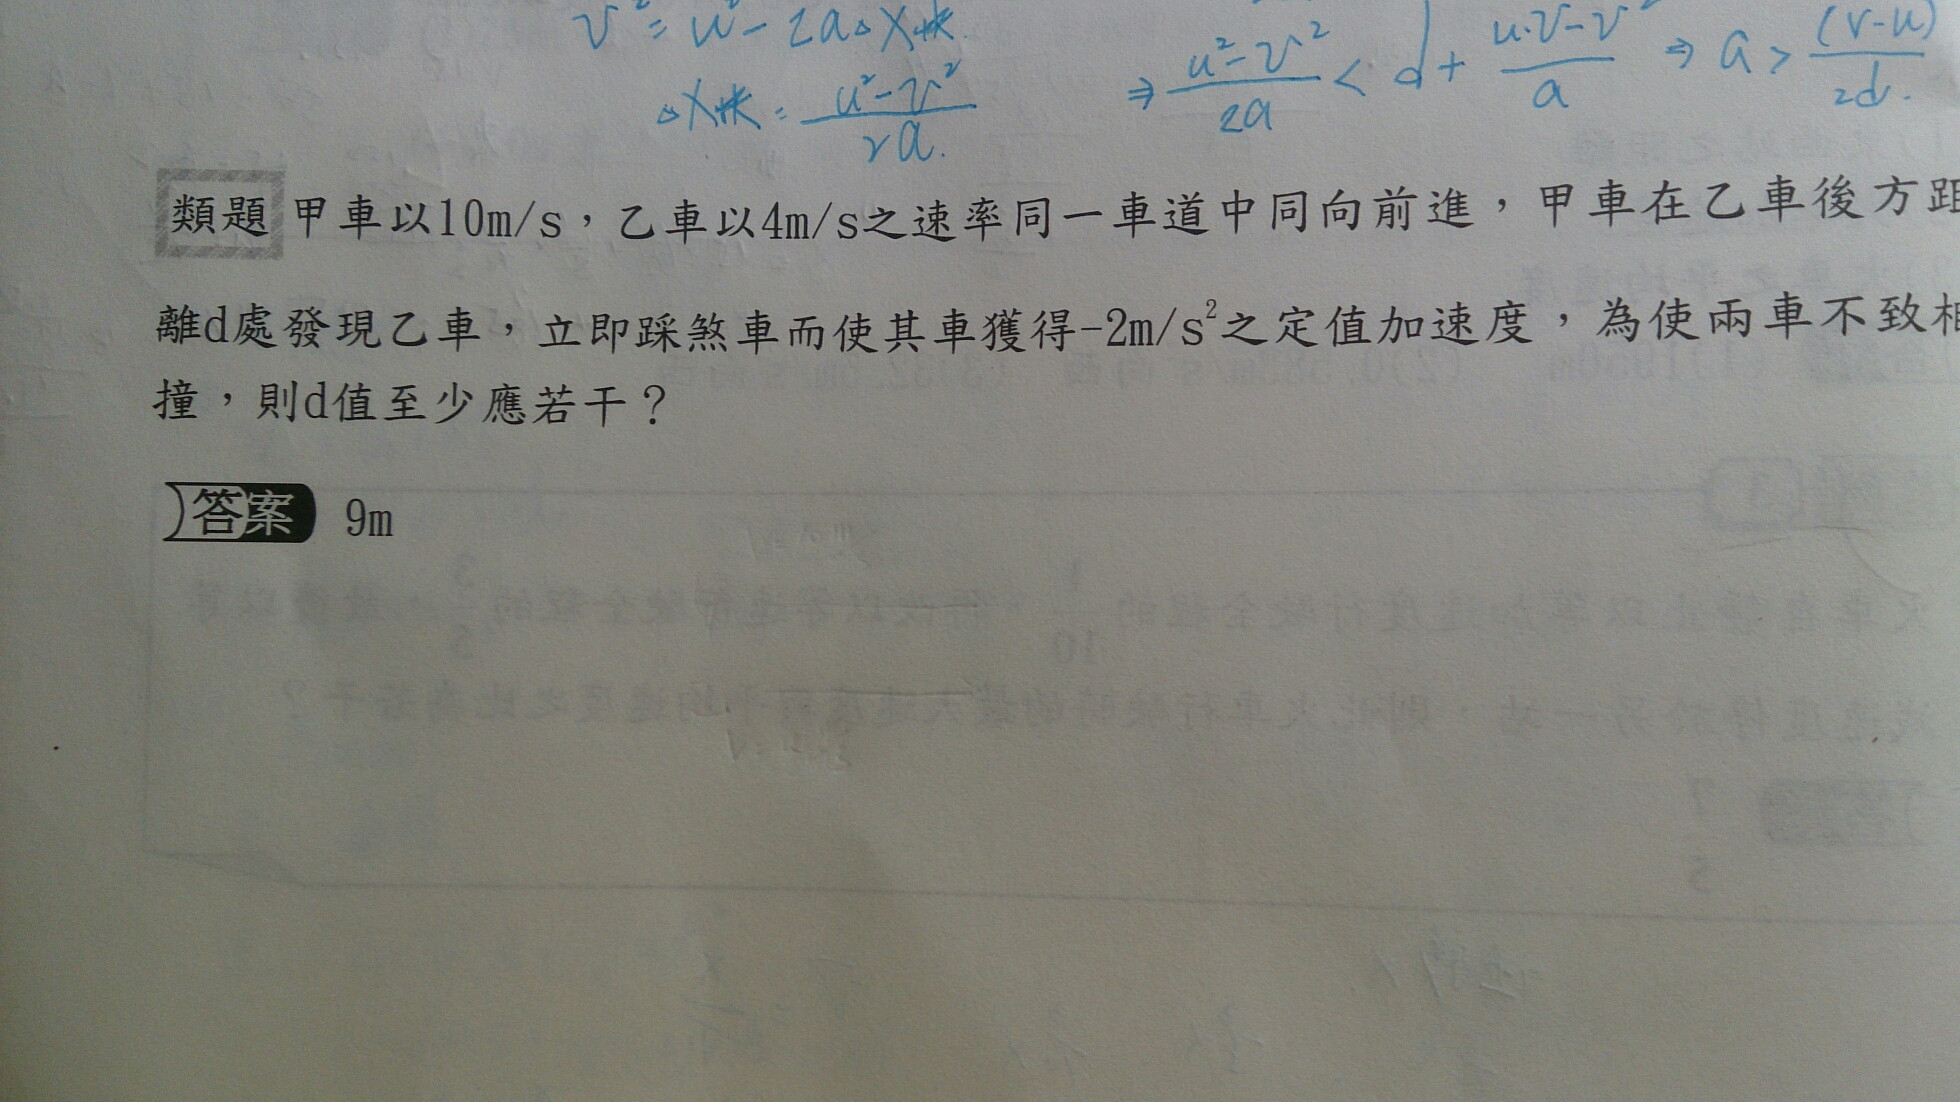 v²=u²-2a△X快
△X快=u²-v²/2a.
⇒ u²-v²/2a < d+ u·v-v²/a ⇒ a> (v-u)/2d.
類題 甲車以10m/s，乙車以4m/s之速率同一車道中同向前進，甲車在乙車後方距
離d處發現乙車，立即踩煞車而使其車獲得-2m/s²之定值加速度，為使兩車不致相
撞，則d值至少應若干？
答案 9m